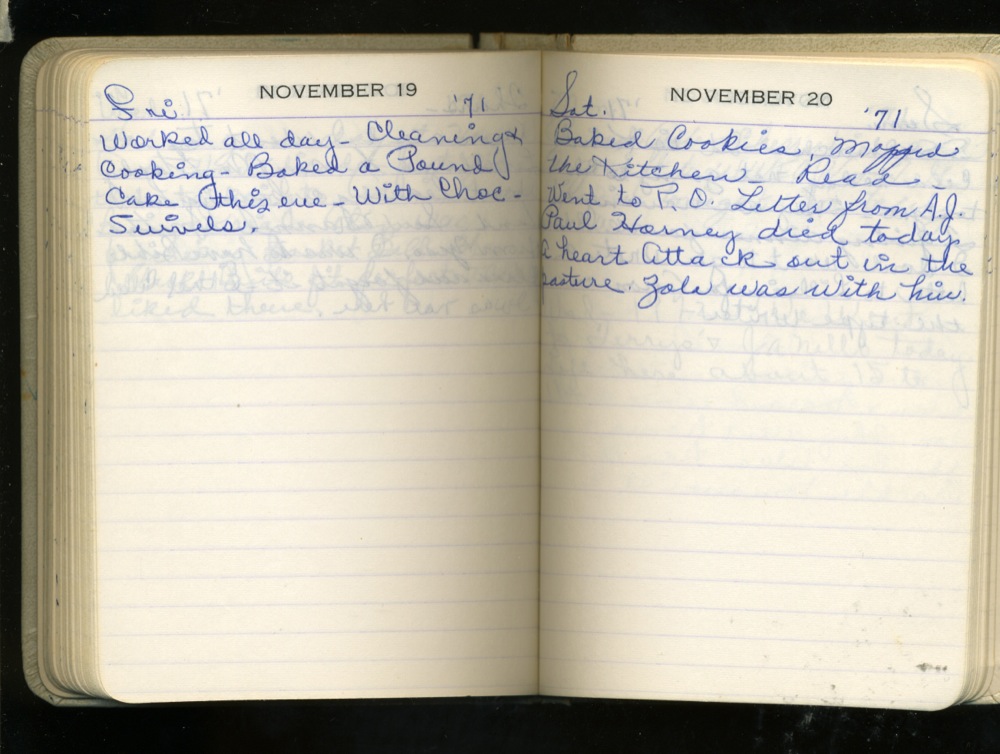 NOVEMBER 19
Fri. '71
Worked all day - Cleaning &
Cooking - Baked a Pound
Cake this eve - With Choc -
Swivels.
NOVEMBER 20
Sat. '71
Baked Cookies. Mopped
the Kitchen - Read -
Went to P. O. Letter from A.J.
Paul Horney died today
a heart Attack out in the
pasture. Zola was with him.